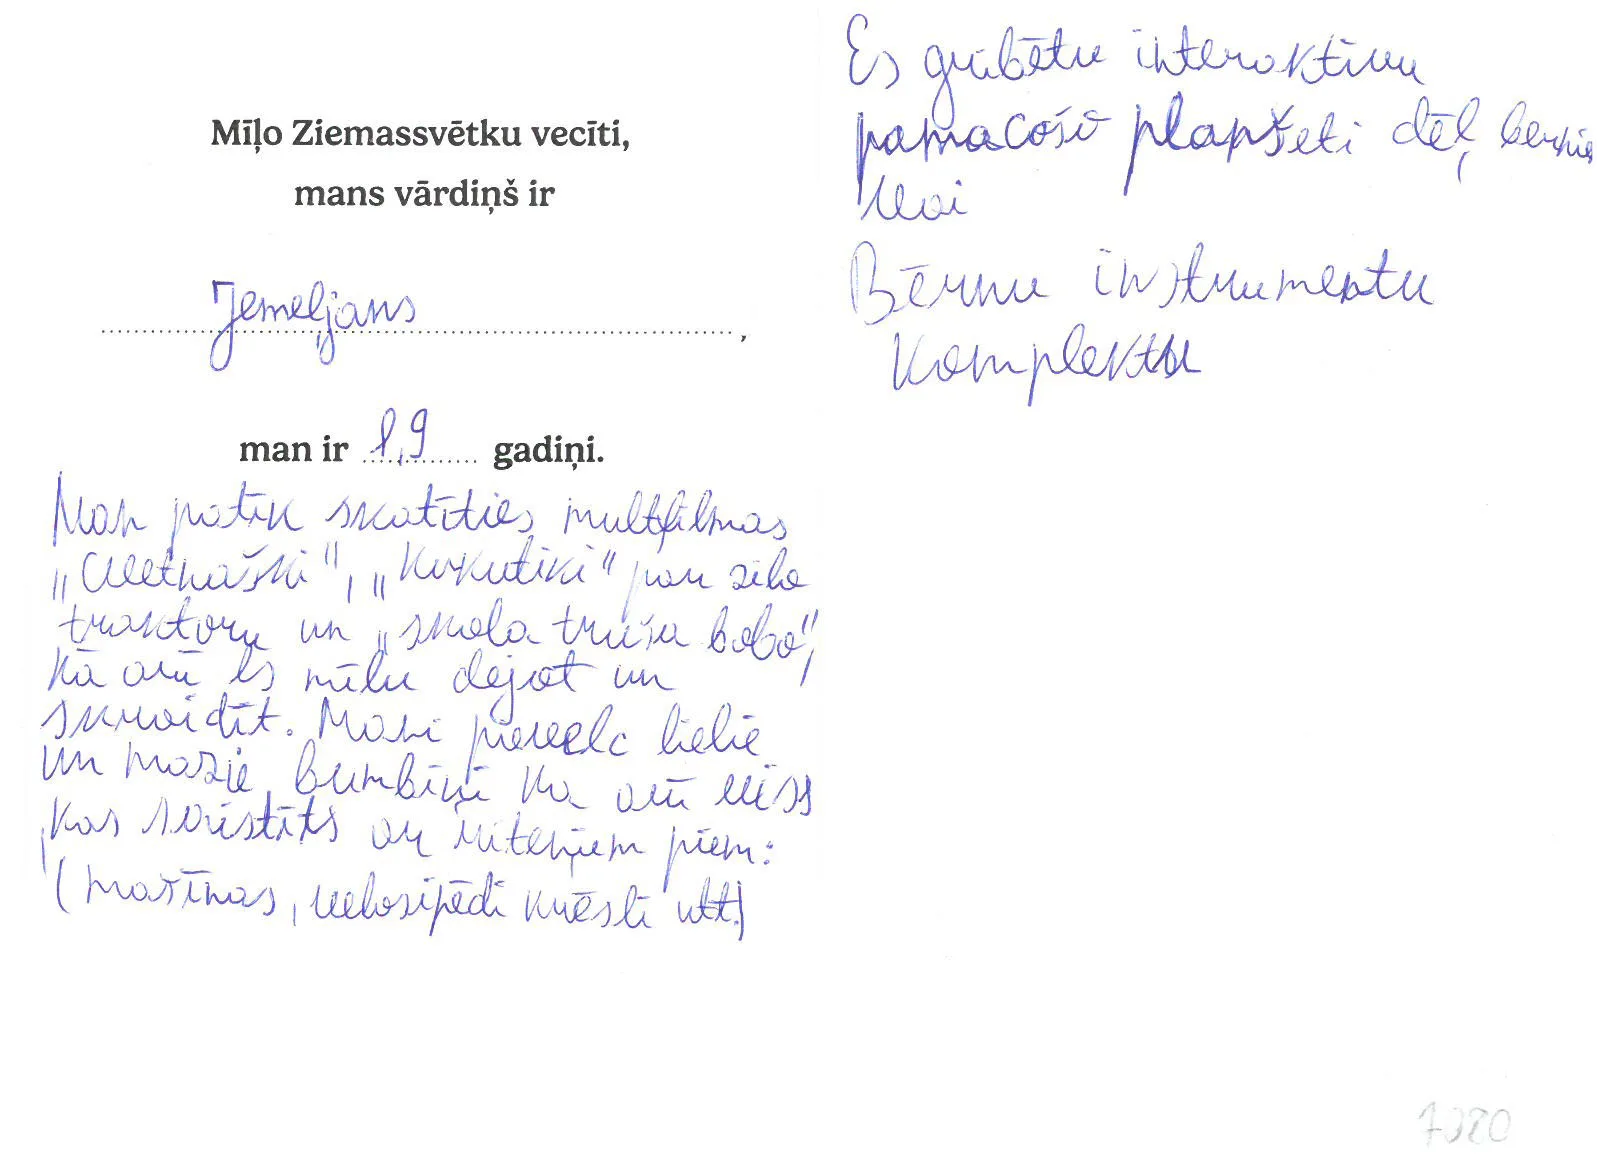 Mīļo Ziemassvētku vecīti,
mans vārdiņš ir
Jemeļjans,
man ir 1,9 gadiņi.
Man patīk skatīties multfilmas
"Cvetņaški", "Kukutiki" par zilo
traktoru un "skola truša bobo",
kā arī es mīlu dejot un
skraidīt. Mani pievelc lielie
un mazie bumbiņi kā arī viss
kas saistīts ar riteņiem piem:
(mašīnas, velosipēdi krēsli utt)
Es gribētu interaktīvu
pamacošo planšeti dēļ bernie
vai
Bērnu instrumentu
komplektu
7380